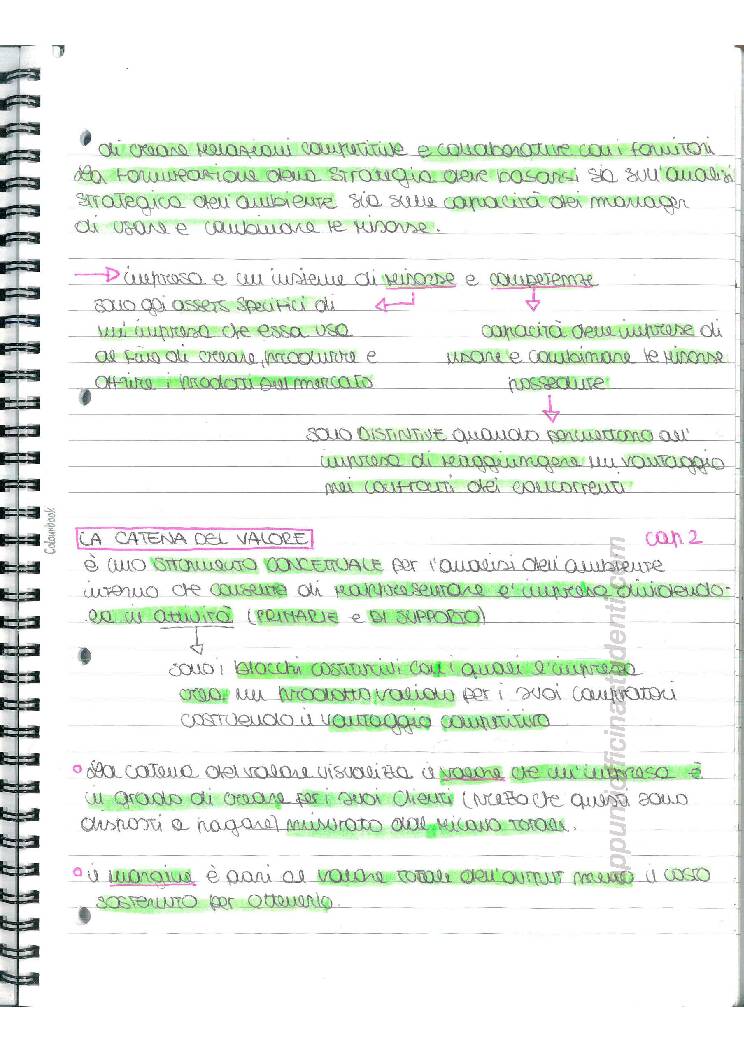 di creare relazioni competitive e collaborative con i fornitori
La formulazione della strategia deve basarsi sia sull'analisi
strategica dell'ambiente sia sulle capacità dei manager
di usare e combinare le risorse.
impresa è un insieme di risorse e competenze
sono gli assets specifici di
un'impresa che essa usa
al fine di creare, produrre e
offrire i prodotti sul mercato
capacità delle imprese di
usare e combinare le risorse
possedute
sono DISTINTIVE quando permettono all'
impresa di raggiungere un vantaggio
nei confronti dei concorrenti
Colourbook
LA CATENA DEL VALORE cap. 2
è uno STRUMENTO CONCETTUALE per l'analisi dell'ambiente
interno che consente di rappresentare l'impresa dividendo-
la in attività (PRIMARIE e DI SUPPORTO)
sono i blocchi costitutivi con i quali l'impresa
crea un prodotto valido per i suoi compratori
costruendo il vantaggio competitivo
La catena del valore visualizza il valore che un'impresa è
in grado di creare per i suoi clienti (prezzo che questi sono
disposti a pagare) misurato dal ricavo totale.
il margine è pari al valore totale dell'output meno il costo
sostenuto per ottenerlo.
appuntiofficinastudenti.com